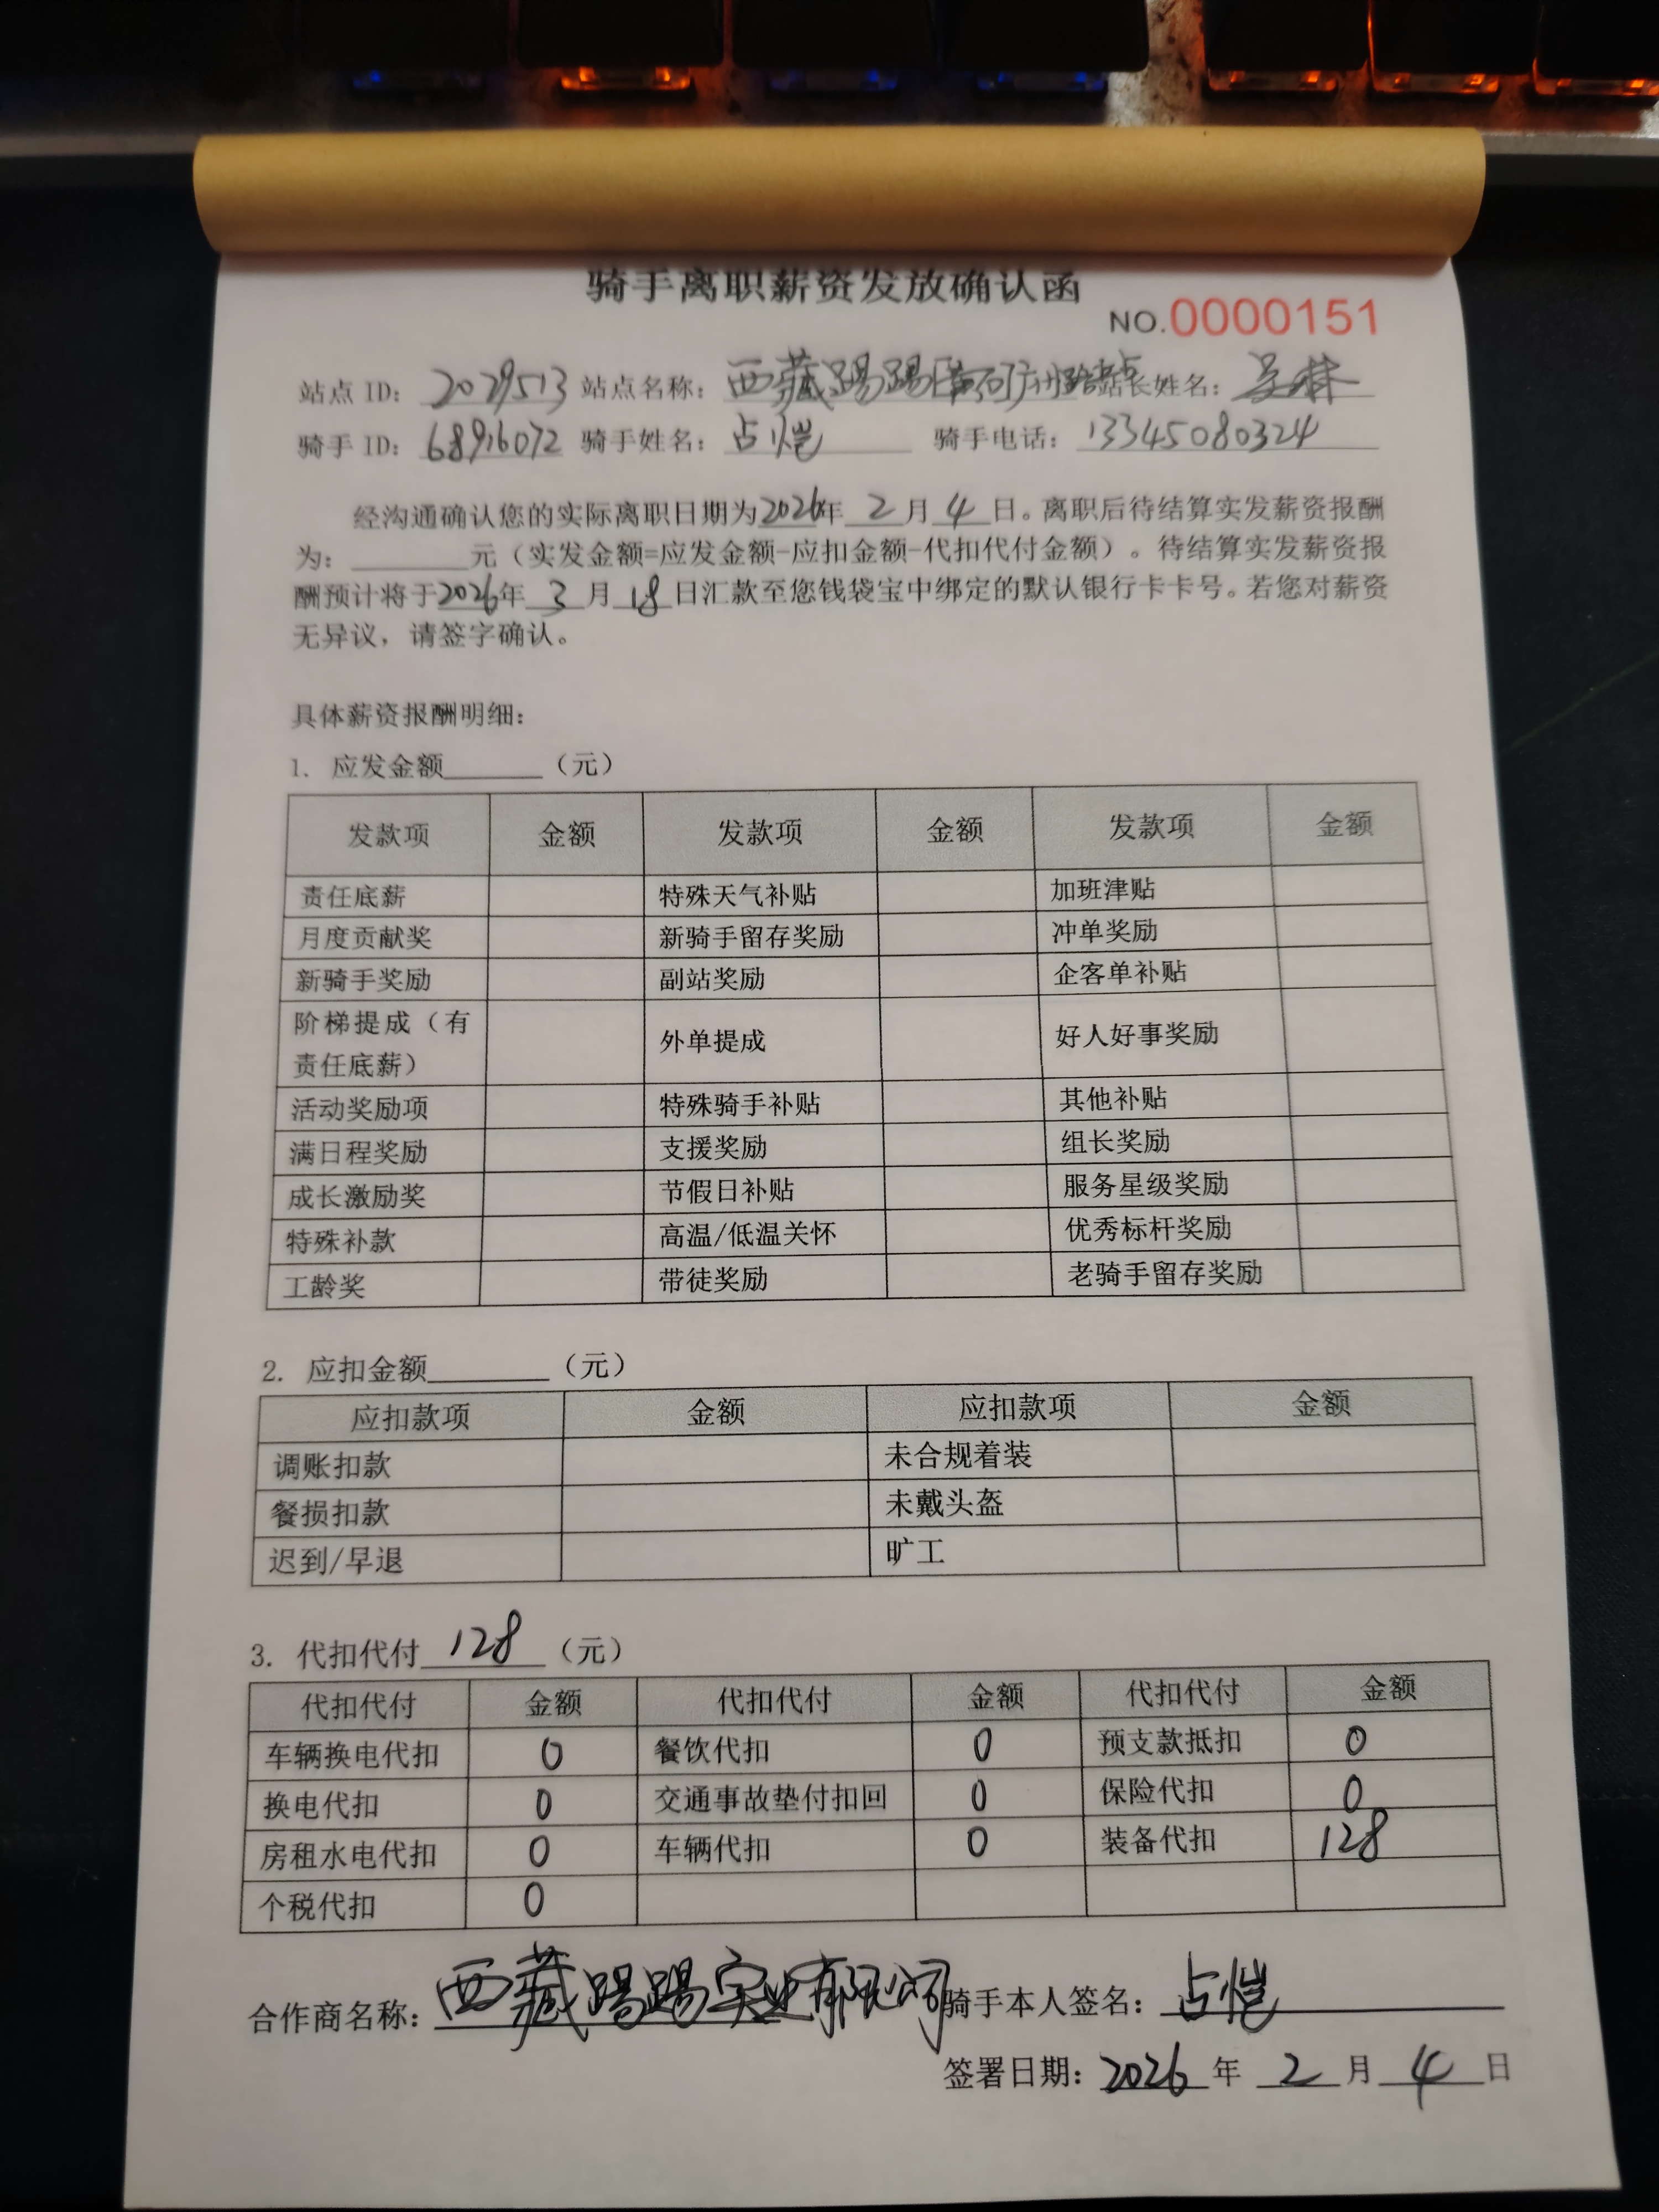 骑手离职薪资发放确认函
NO.0000151
站点 ID: 2029513 站点名称: 西藏踢踢 站长姓名: 吴林
骑手 ID: 68916072 骑手姓名: 占恺 骑手电话: 13345080324
经沟通确认您的实际离职日期为2026年 2 月 4 日。离职后待结算实发薪资报酬
为: ______元（实发金额=应发金额-应扣金额-代扣代付金额）。待结算实发薪资报
酬预计将于2026年 3 月 18 日汇款至您钱袋宝中绑定的默认银行卡卡号。若您对薪资
无异议，请签字确认。
具体薪资报酬明细:
1. 应发金额______（元）
发款项 金额 发款项 金额 发款项 金额
责任底薪 特殊天气补贴 加班津贴
月度贡献奖 新骑手留存奖励 冲单奖励
新骑手奖励 副站奖励 企客单补贴
阶梯提成（有责任底薪） 外单提成 好人好事奖励
活动奖励项 特殊骑手补贴 其他补贴
满日程奖励 支援奖励 组长奖励
成长激励奖 节假日补贴 服务星级奖励
特殊补款 高温/低温关怀 优秀标杆奖励
工龄奖 带徒奖励 老骑手留存奖励
2. 应扣金额______（元）
应扣款项 金额 应扣款项 金额
调账扣款 未合规着装
餐损扣款 未戴头盔
迟到/早退 旷工
3. 代扣代付 128 （元）
代扣代付 金额 代扣代付 金额 代扣代付 金额
车辆换电代扣 0 餐饮代扣 0 预支款抵扣 0
换电代扣 0 交通事故垫付扣回 0 保险代扣 0
房租水电代扣 0 车辆代扣 0 装备代扣 128
个税代扣 0
合作商名称: 西藏踢踢实业有限公司 骑手本人签名: 占恺
签署日期: 2026 年 2 月 4 日